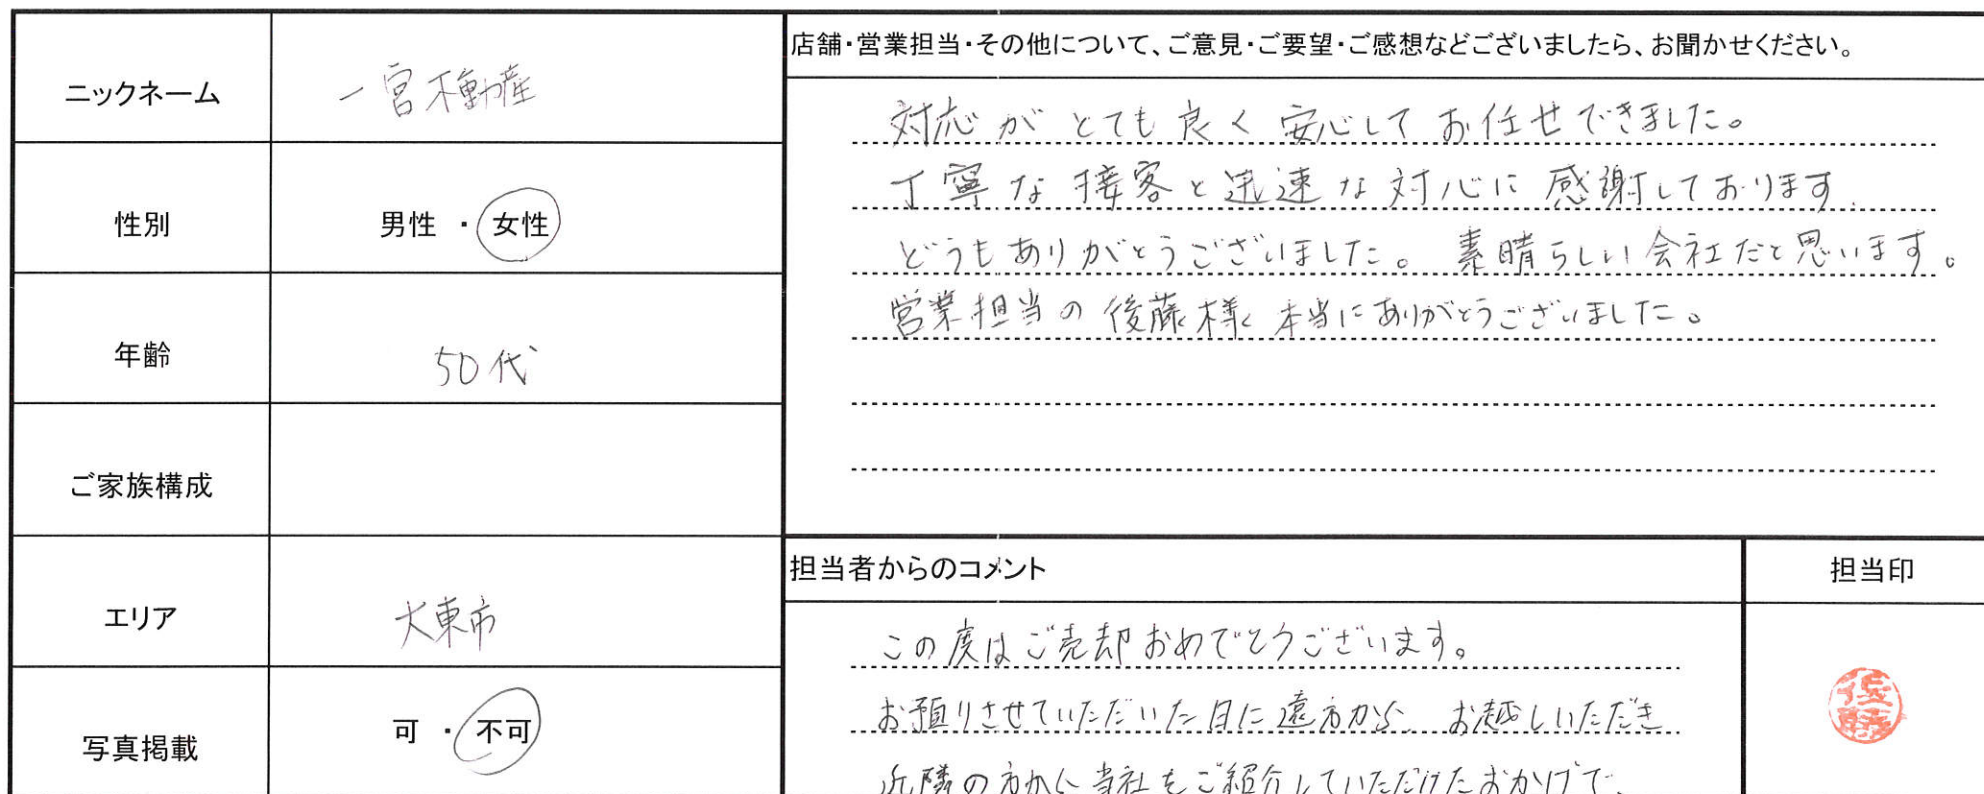 ニックネーム
一宮不動産
性別
男性 ・ 女性
年齢
50代
ご家族構成
エリア
大東市
写真掲載
可 ・ 不可
店舗・営業担当・その他について、ご意見・ご要望・ご感想などございましたら、お聞かせください。
対応がとても良く安心してお任せできました。
丁寧な接客と迅速な対応に感謝しております
どうもありがとうございました。素晴らしい会社だと思います。
営業担当の後藤様本当にありがとうございました。
担当者からのコメント
この度はご売却おめでとうございます。
お預りさせていただいた日に遠方から、お越しいただき
近隣の方から当社をご紹介していただけたおかげで、
担当印
後藤